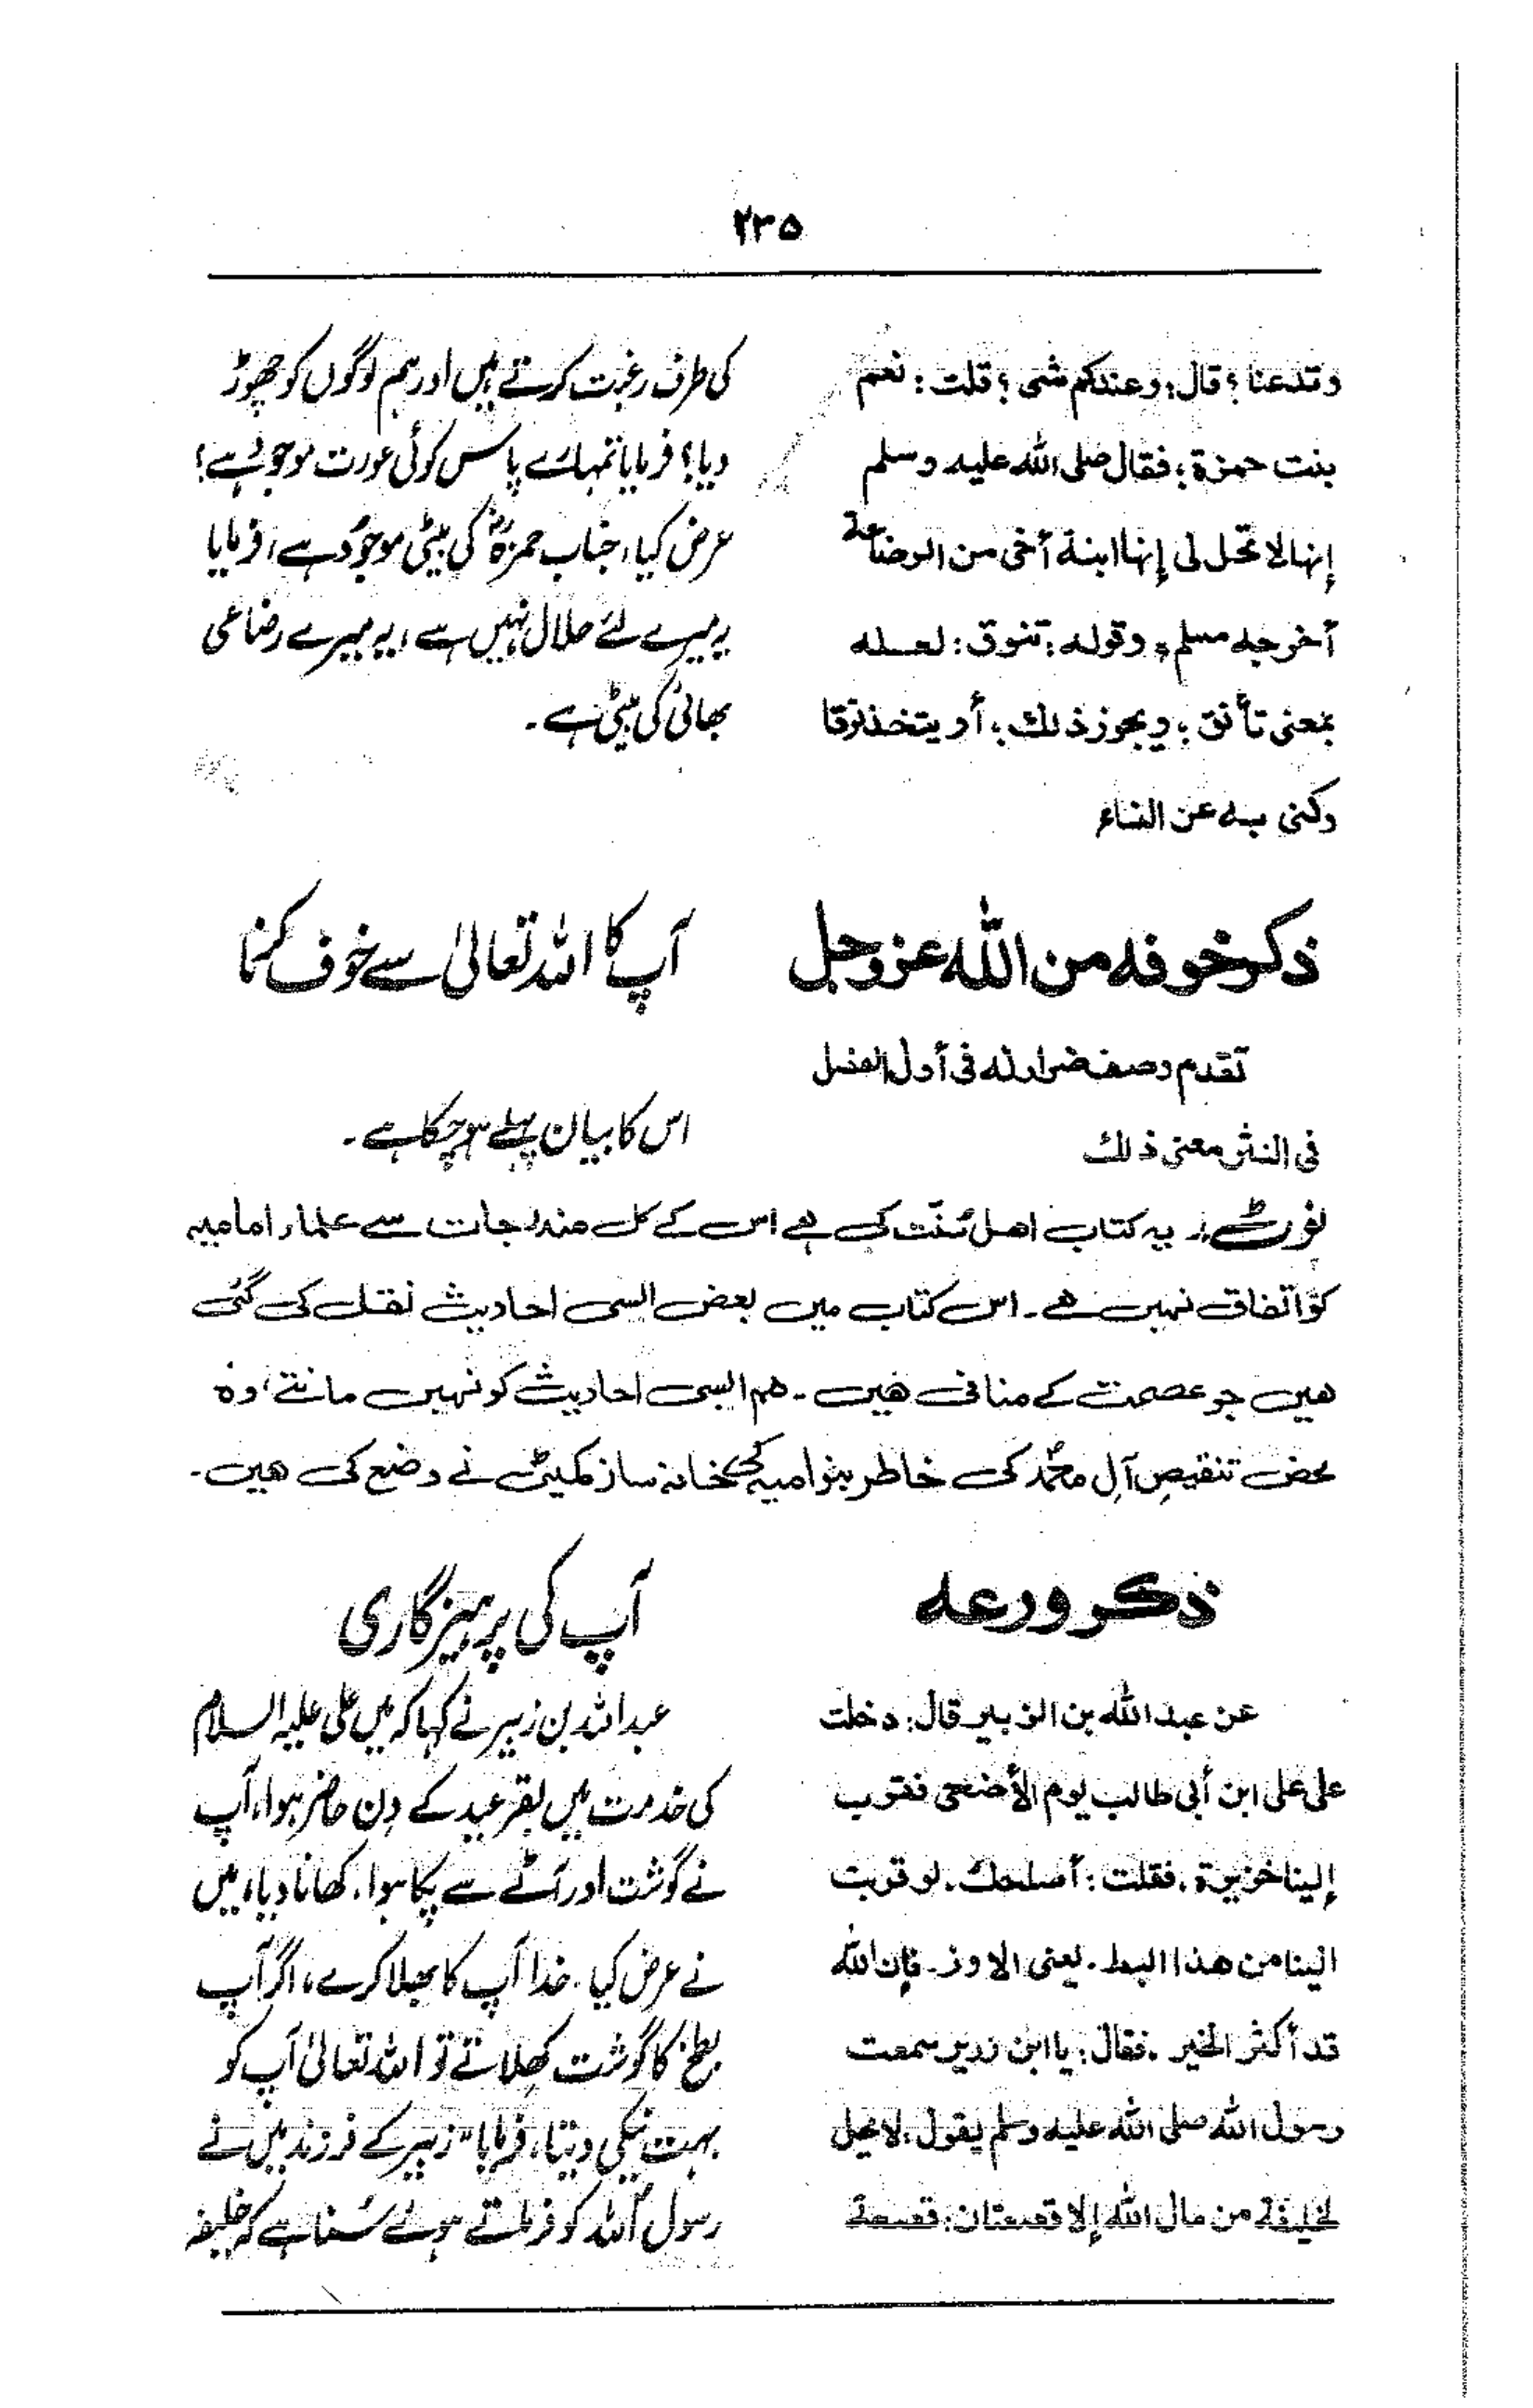 ۲۳۵
وتدعنا؟ قال: وعندكم شی؟ قلت: نعم
بنت حمزة؛ فقال صلى الله عليه وسلم
إنها لا تحل لى إنها ابنة أخى من الرضاعة
أخرجه مسلم؛ وقوله: تنوق: لعله
بمعنى تأنق؛ ويجوز ذلك؛ أو يتخذ نوقا
وكنى به عن النساء
کی طرف رغبت کرتے ہیں اور ہم لوگوں کو چھوڑ
دیا؟ فرمایا تمہارے پاس کوئی عورت موجود ہے؟
عرض کیا، جناب حمزہؓ کی بیٹی موجود ہے، فرمایا
یہ میرے لئے حلال نہیں ہے، یہ میرے رضاعی
بھائی کی بیٹی ہے۔
ذكر خوفه من الله عز وجل
تقدم وصف ضرار له فى أول الفضل
فى النثر معنى ذلك
آپ کا اللہ تعالیٰ سے خوف کرنا
اس کا بیان پہلے ہو چکا ہے۔
نوٹ:۔ یہ کتاب اهل سُنّت کی ہے اس کے کل مندرجات سے علماء امامیہ
کو اتفاق نہیں ہے۔ اس کتاب میں بعض ایسی احادیث نقل کی گئی
ہیں جو عصمت کے منافی ہیں۔ ہم ایسی احادیث کو نہیں مانتے، وہ
محض تنقیصِ آلِ محمدؐ کی خاطر بنو امیہ کی خانہ ساز کمیٹی نے وضع کی ہیں۔
ذكر ورعه
عن عبدالله بن الزبير قال: دخلت
على على ابن أبى طالب يوم الأضحى فقرب
إلينا خزيرة. فقلت: أصلحك. لو قربت
الينا من هذا البط. يعنى الاوز. فإن الله
قد أكثر الخير. فقال: يا ابن زرير سمعت
رسول الله صلى الله عليه وسلم يقول لا يحل
لخليفة من مال الله إلا قصعتان: قصعة
آپ کی پرہیزگاری
عبداللہ بن زبیر نے کہا کہ میں علی علیہ السلام
کی خدمت میں بقر عید کے دِن حاضر ہوا، آپ
نے گوشت اور آٹے سے پکا ہوا، کھانا دیا، میں
نے عرض کیا۔ خدا آپ کا بھلا کرے، اگر آپ
بطخ کا گوشت کھلاتے تو اللہ تعالیٰ آپ کو
بہت نیکی دیتا، فرمایا "زبیر کے فرزند میں نے
رسول اللہ کو فرماتے ہوئے سُنا ہے کہ خلیفہ